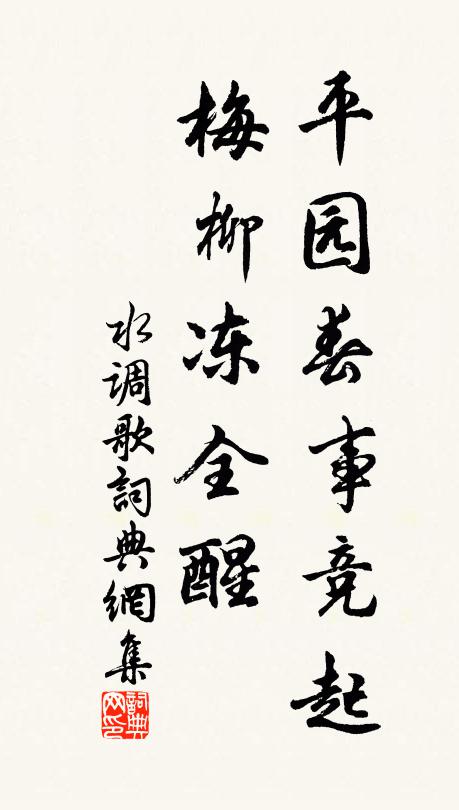 平园春事竞起
梅柳冻全醒
水调歌詞典網集
詞典网印